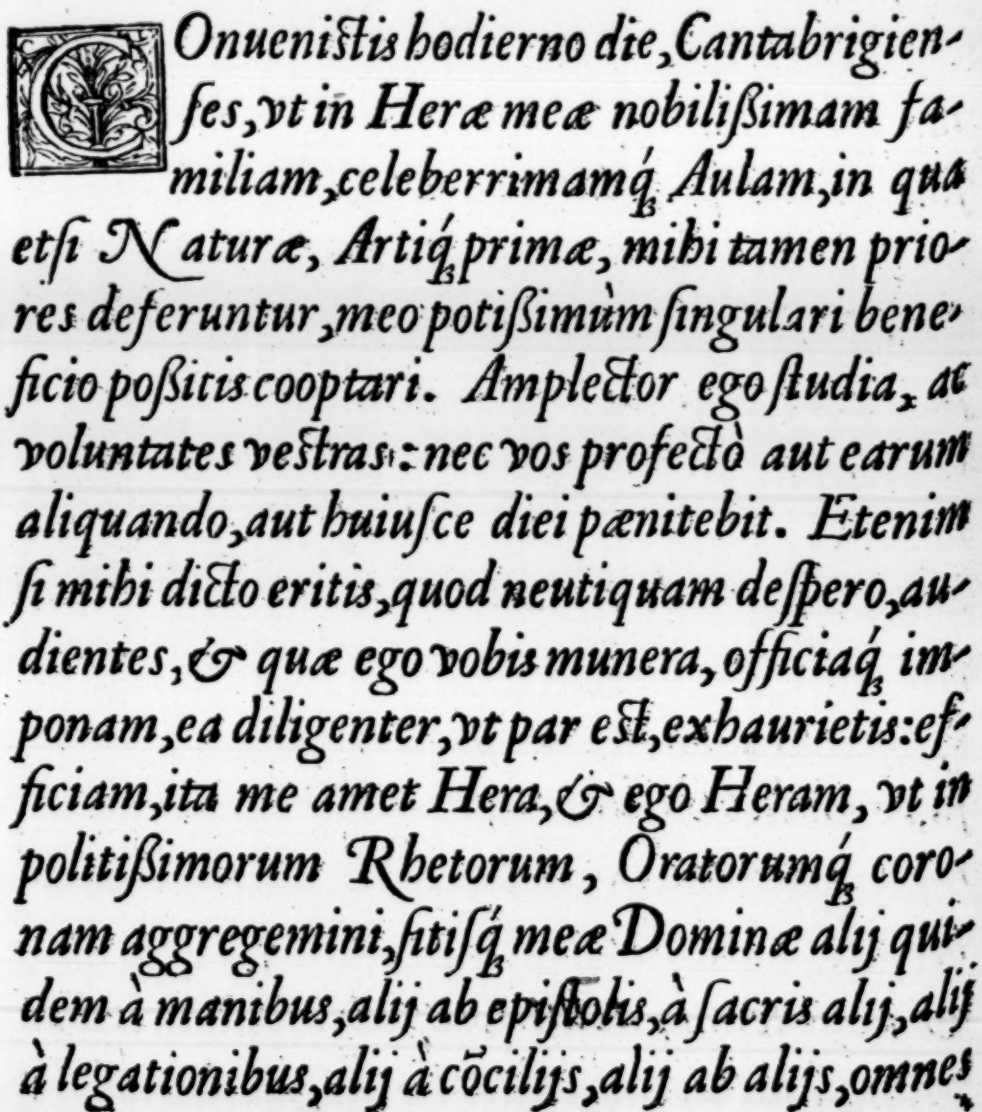 COnuenistis hodierno die, Cantabrigien-
ſes, vt in Heræ meæ nobilißimam fa-
miliam, celeberrimamq́ꝫ Aulam, in qua
etſi Naturæ, Artiq́ꝫ primæ, mihi tamen prio-
res deferuntur, meo potißimùm ſingulari bene-
ficio poßitis cooptari. Amplector ego ſtudia, ac
voluntates vestras: nec vos profectò aut earum
aliquando, aut huiuſce diei pænitebit. Etenim
ſi mihi dicto eritis, quod neutiquam deſpero, au-
dientes, & quæ ego vobis munera, officiaq́ꝫ im-
ponam, ea diligenter, vt par est, exhaurietis: ef-
ficiam, ita me amet Hera, & ego Heram, vt in
politißimorum Rhetorum, Oratorumq́ꝫ coro-
nam aggregemini, ſitiſq́ꝫ meæ Dominæ alij qui-
dem à manibus, alij ab epiſtolis, à ſacris alij, alij
à legationibus, alij à cõcilijs, alij ab alijs, omnes